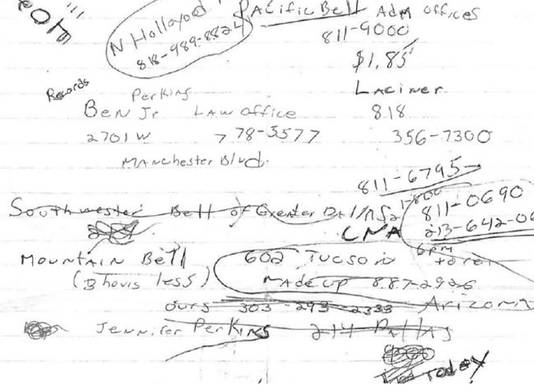 N Hollywood
818-989-8824
PACIFIC Bell ADM Offices
811-9000
$1.85
Records
Perkins
Laciner
Ben Jr LAW OFFICE
818
2701 W 778-5577
356-7300
MANChester Blvd.
811-6795
1-800
811-0690
Southwester Bell of Greater
CNA
213-642-06
MOUNTAIN Bell
602 Tucson
(3 hours less)
MADE up 887-2926
ours 303-293-2333 Arizona
Jennifer Perkins 214 Dallas
Today